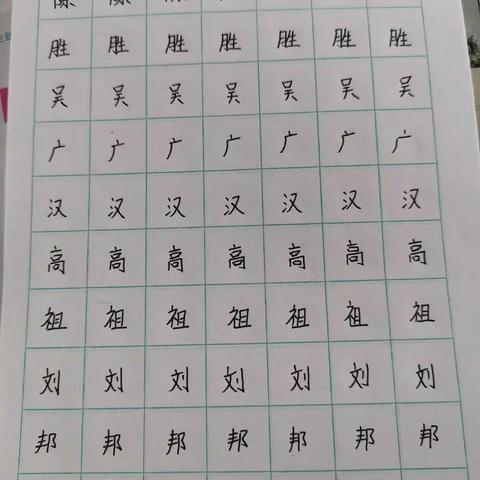 胜 胜 胜 胜 胜 胜 胜
吴 吴 吴 吴 吴 吴 吴
广 广 广 广 广 广 广
汉 汉 汉 汉 汉 汉 汉
高 高 高 高 高 高 高
祖 祖 祖 祖 祖 祖 祖
刘 刘 刘 刘 刘 刘 刘
邦 邦 邦 邦 邦 邦 邦